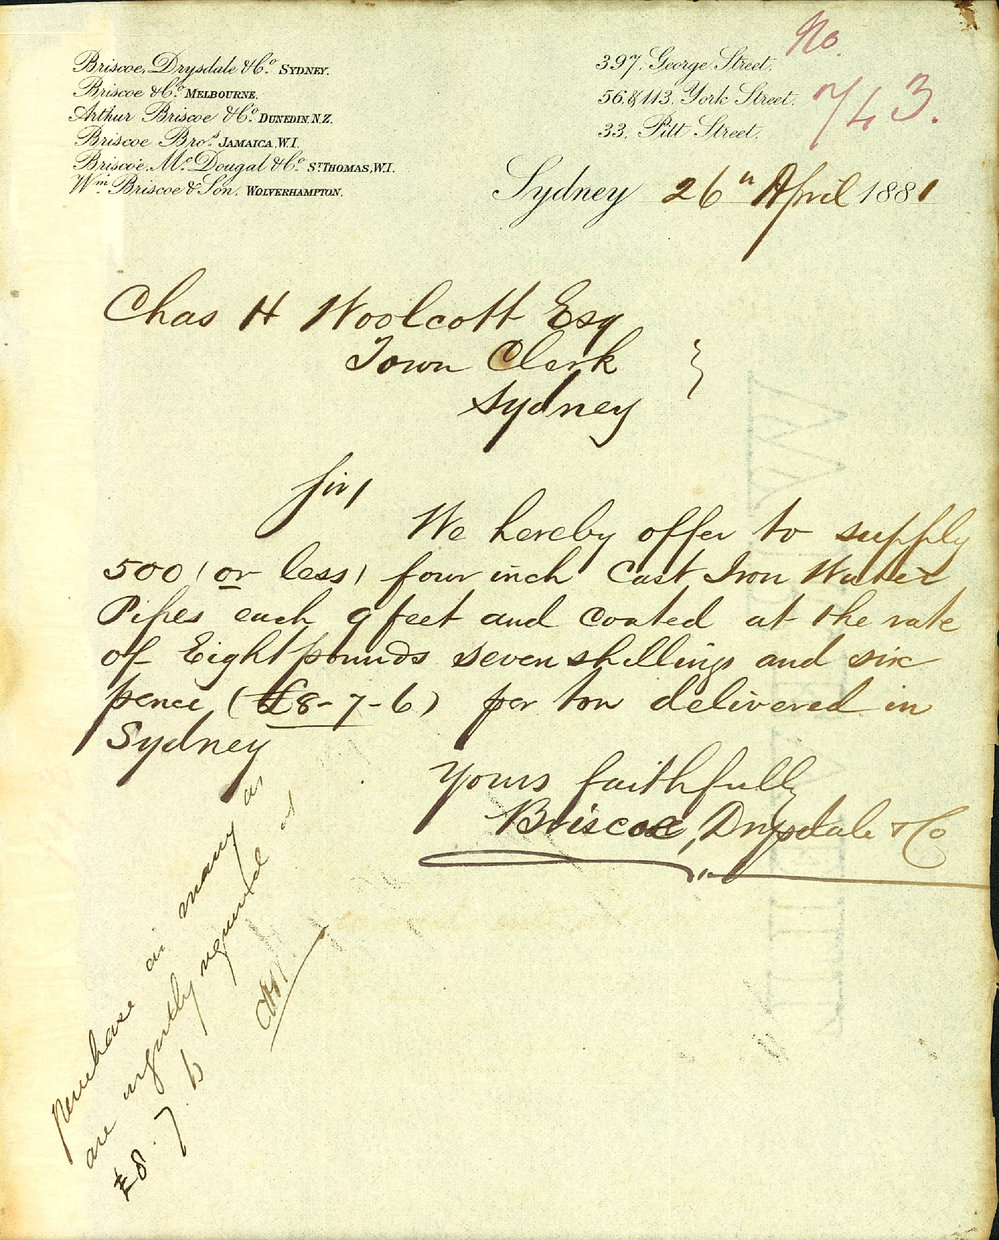 No.
743.
Briscoe, Drysdale & Co. SYDNEY.
Briscoe & Co. MELBOURNE.
Arthur Briscoe & Co. DUNEDIN, N.Z.
Briscoe Bros. JAMAICA, W.I.
Briscoe, Mc.Dougal & Co. ST THOMAS, W.I.
Wm Briscoe & Son, WOLVERHAMPTON.
397, George Street,
56, & 113, York Street,
33, Pitt Street,
Sydney 26th April 1881
Chas H Woolcott Esq
Town Clerk
Sydney
Sir,
We hereby offer to supply
500 (or less) four inch Cast Iron Water
Pipes each 9 feet and coated at the rate
of Eight pounds seven shillings and six
pence (£8-7-6) per ton delivered in
Sydney
Yours faithfully
Briscoe, Drysdale & Co
purchase as many as
are urgently required at
£8.7.6
CHW